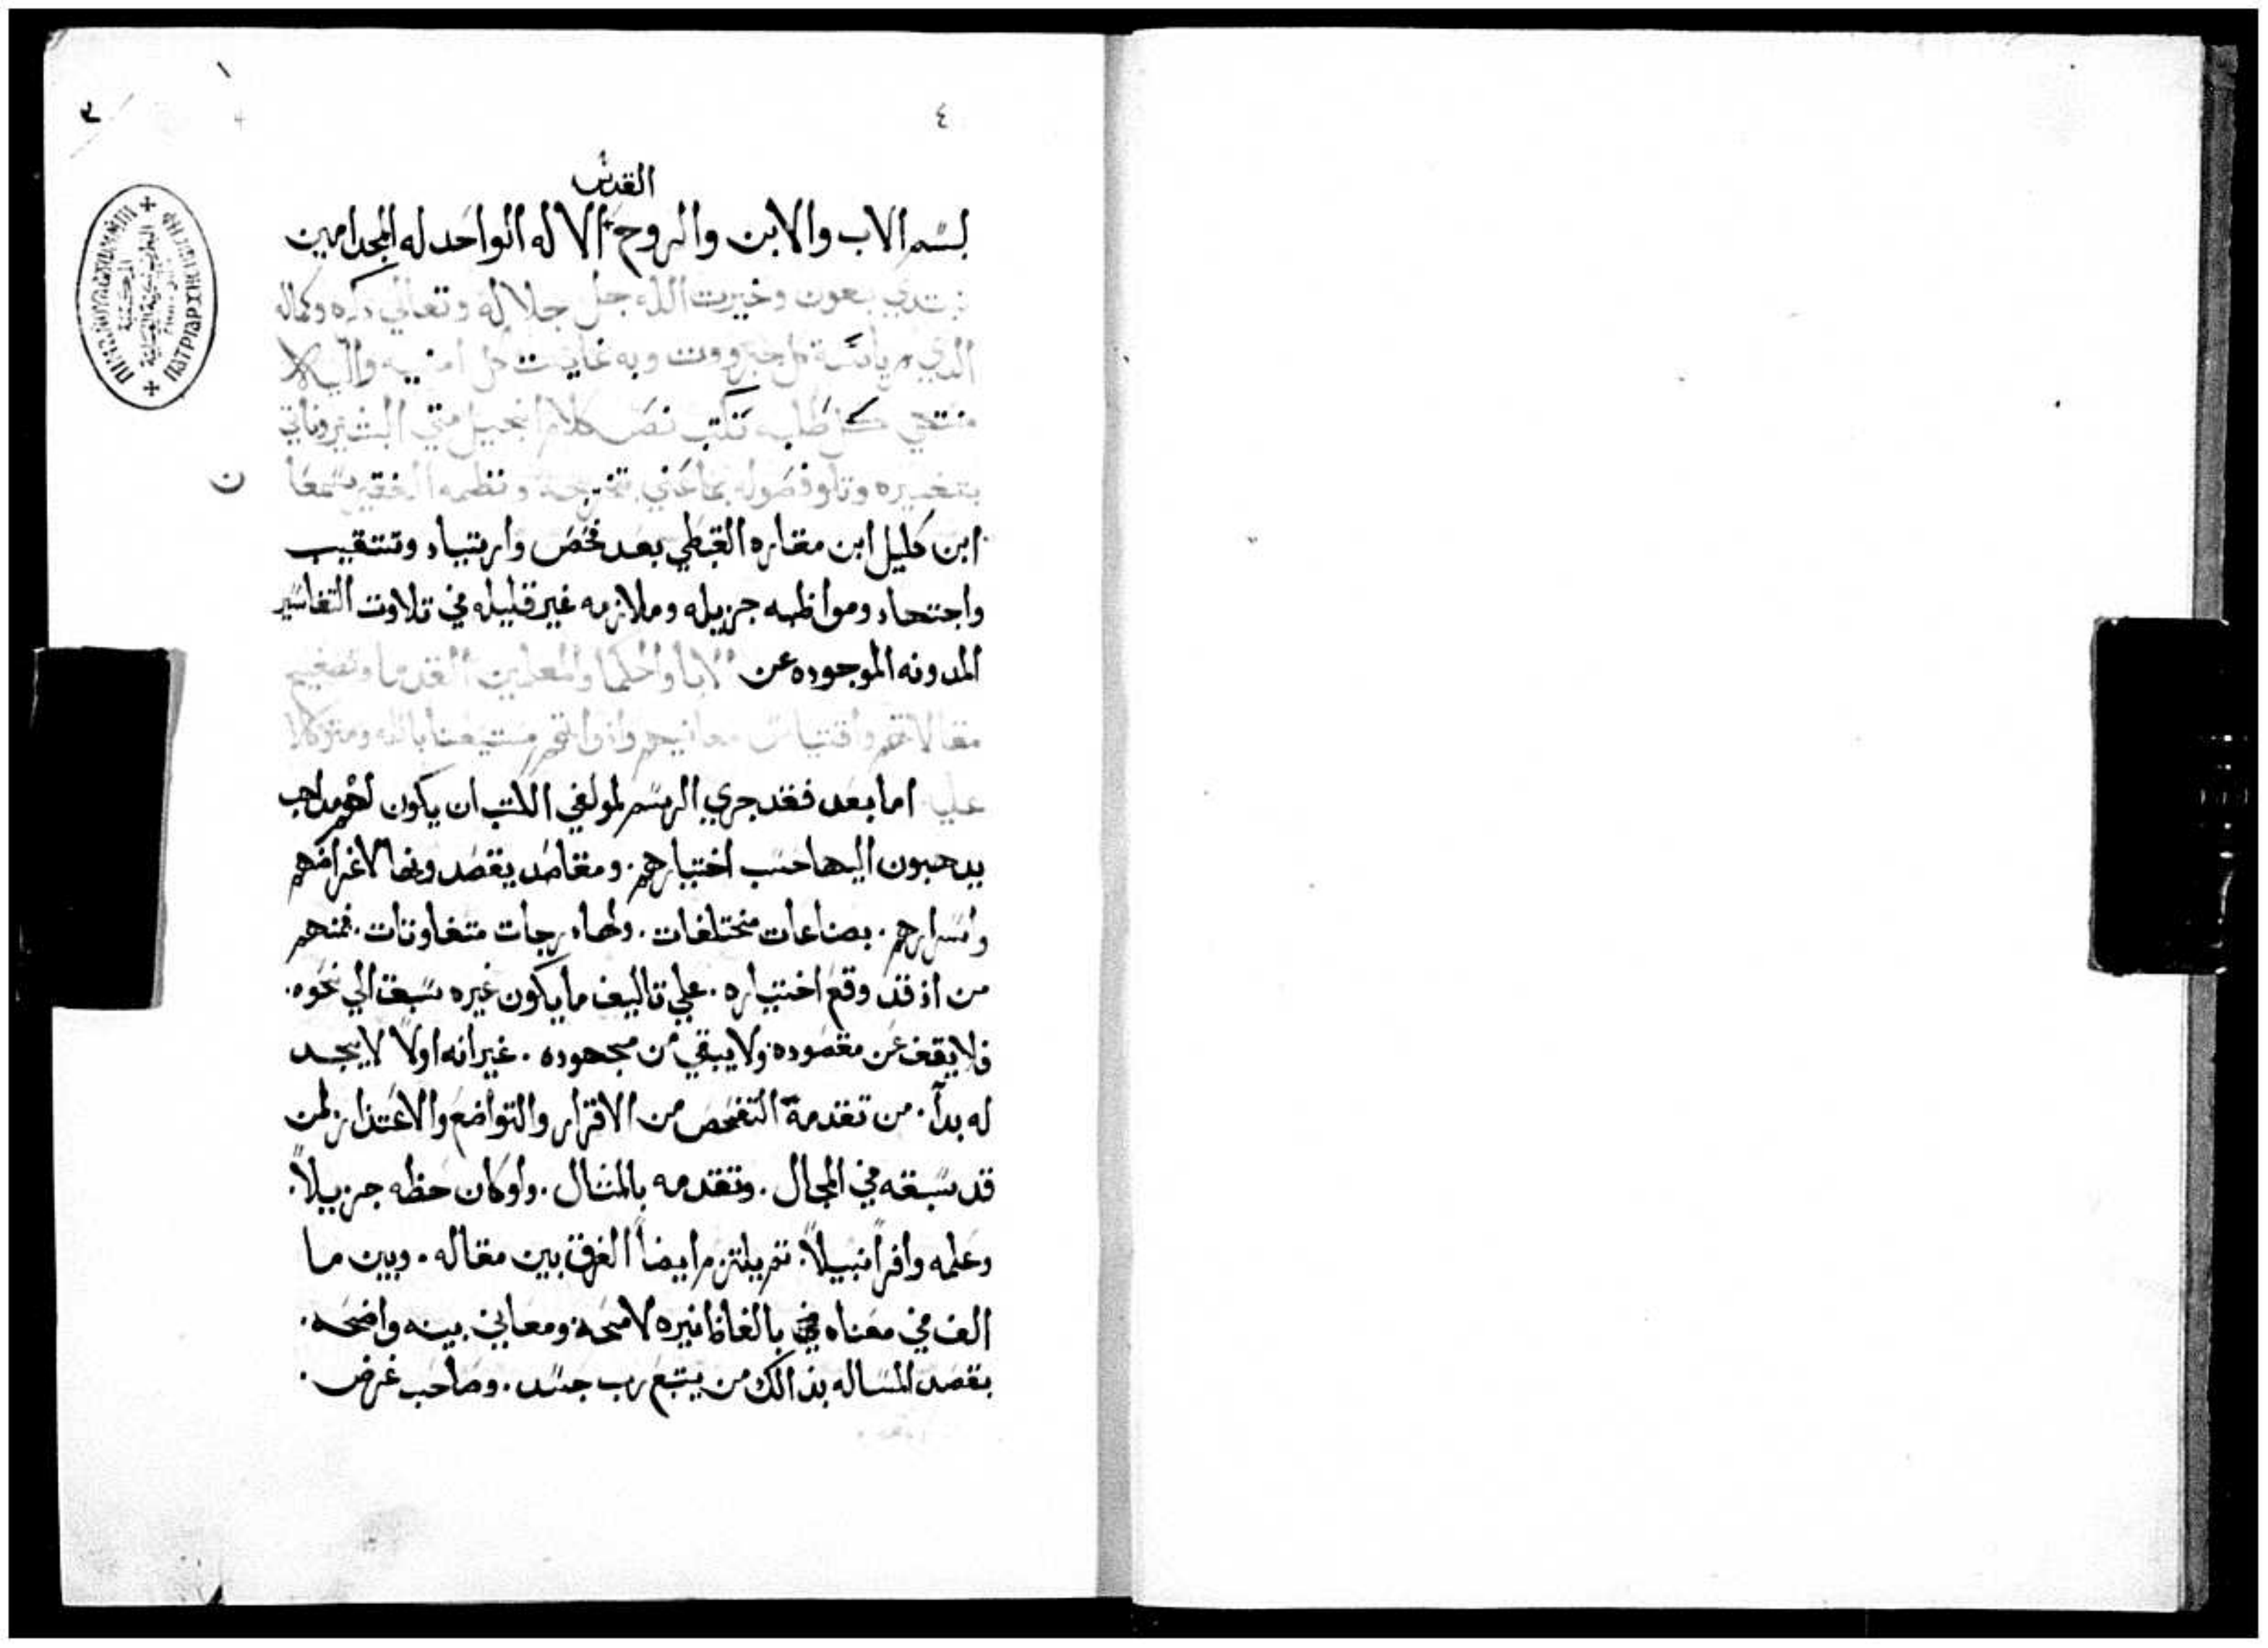 ٤
القدس
بسم الاب والابن والروح الاله الواحد له المجد امين
نبتدي بعون وخيرت الله جل جلاله وتعالي ذكره وكماله
الذي كل جبرووت وبه غايت كل امنيه واليه
منتهي كل طلبه نكتب نص كلام انجيل متي البشير وناتي
بتفسيره وتلو فصوله بما عني بتخريجه ونظمه الفقير سمعان
ابن كليل ابن مقاره القبطي بعد فحص وارتياد وتنقيب
واجتهاد ومواظبه جزيله وملازمه غير قليله في تلاوت التفاسير
المدونه الموجوده عن الابا والحكما والمعلمين القدما وتصفيح
مقالاتهم واقتباس معانيهم مستعينا بالله ومتوكلا
عليه اما بعد فقد جري الرسم لمولفي الكتب ان يكون لهم مداهب
يدهبون اليها حسب اختيارهم. ومقاصد يقصدونها لاغراضهم
واسرارهم. بصناعات مختلفات. ولها درجات متفاوتات. فمنهم
من اذ قد وقع اختياره. علي تاليف ما يكون غيره سبق الي نحوه.
فلا يقف عن مقصوده ولا يبقي من مجهوده. غير انه اولا لا يجد
له بدآ. من تقدمة التفحص من الاقرار والتواضع والاعتذار لمن
قد سبقه في المجال. وتقدمه بالمثال. ولو كان حظه جزيلاً.
وعلمه وافراً نبيلاً. ثم يلتزم ايضاً الفرق بين مقاله. وبين ما
الف في معناه بالفاظ نيره لامحه ومعاني بينه واضحه.
بقصد المساله بذالك من يتبع رب جسد. وصاحب غرض.